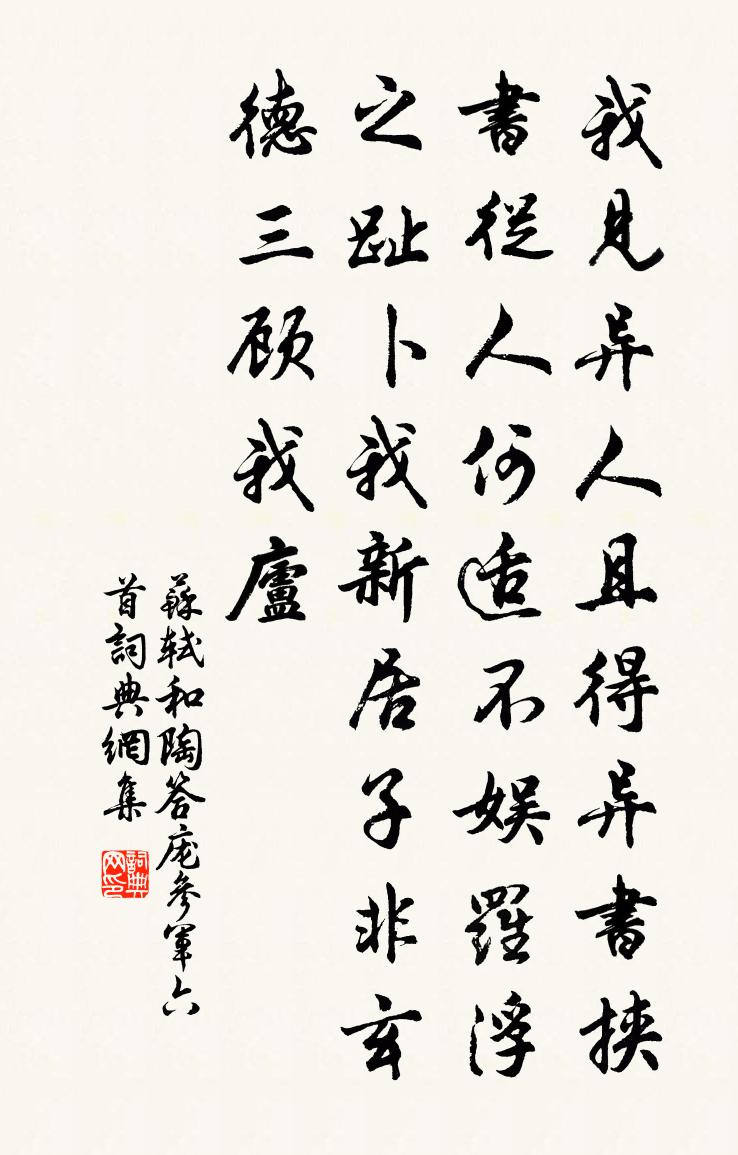 我見异人且得异書挾
書從人何适不娱羅浮
之趾卜我新居子非玄
德三顾我廬
蘇軾和陶答庞參軍六
首詞典網集
詞典网印